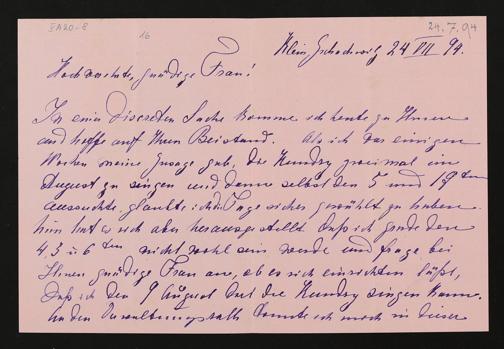 IA20-8
16
24.7.94
Klein Zschachwitz 24 VII 94.
Hochverehrte, gnädige Frau!
In einer discreten Sache komme ich heute zu Ihnen
und hoffe auf Ihren Beistand. Als ich vor einigen
Wochen meine Zusage gab, die Kundry zweimal im
August zu singen und dann selbst den 5 und 19ten
aussuchte, glaubte ich die Tage sicher gewählt zu haben.
Nun hat es sich aber herausgestellt daß ich grade den
4, 5 u 6ten nicht wohl sein werde und frage bei
Ihnen gnädige Frau an, ob es sich einrichten läßt,
daß ich den 9 August die Kundry singen kann.
An den Verwaltungsrath konnte ich mich in dieser